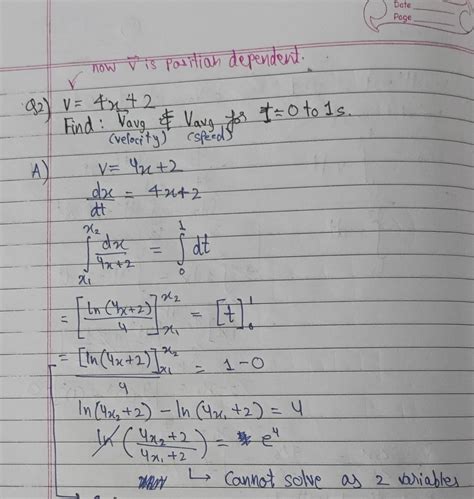 Date
Page
now v⃗ is position dependent.
Q2) v = 4x + 2
Find: Vavg & Vavg for t = 0 to 1s.
(velocity) (speed)
A) v = 4x + 2
dx/dt = 4x + 2
∫_{x₁}^{x₂} dx/(4x+2) = ∫_0^1 dt
= [ln(4x+2)/4]_{x₁}^{x₂} = [t]_0^1
= [ln(4x+2)]_{x₁}^{x₂}/4 = 1 - 0
ln(4x₂+2) - ln(4x₁+2) = 4
ln((4x₂+2)/(4x₁+2)) = e⁴
↳ Cannot solve as 2 variables